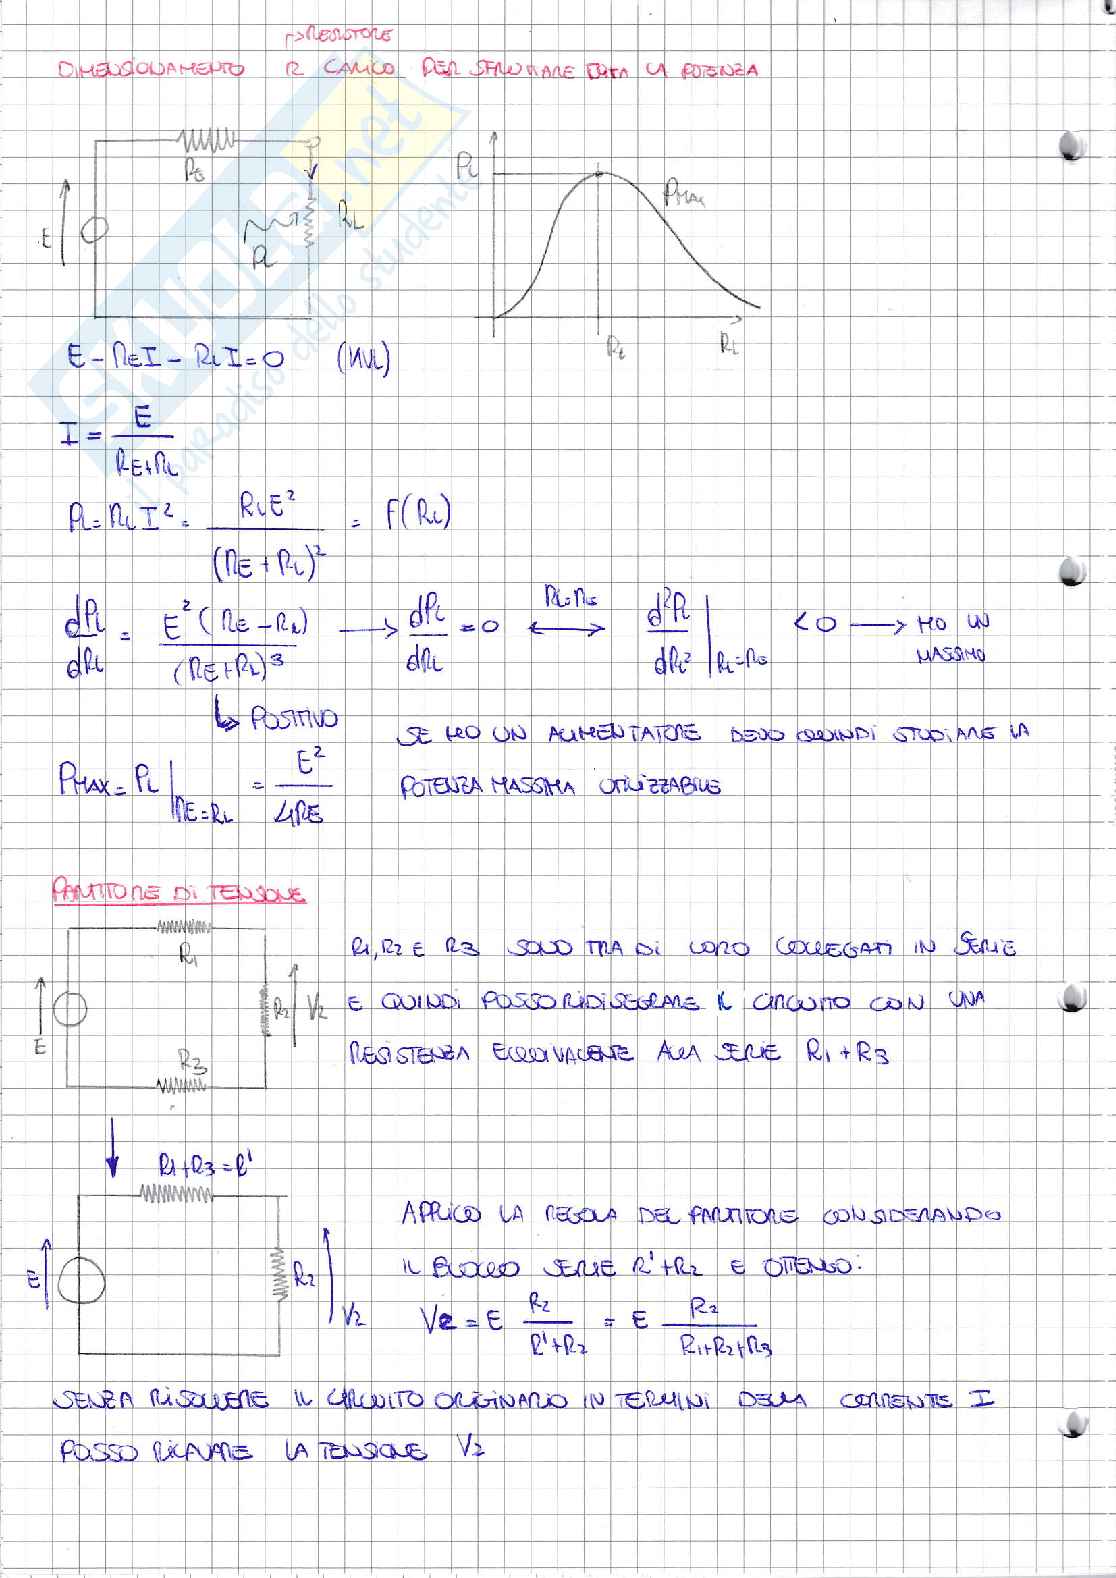 →RESISTORE
DIMENSIONAMENTO R CARICO PER SFRUTTARE TUTTA LA POTENZA
RE
E
PL
RL
PL
PMAX
RL
RL
E - REI - RLI = 0 (KVL)
I = E / (RE + RL)
PL = RL I² = RL E² / (RE + RL)² = F(RL)
dPL/dRL = E² (RE - RL) / (RE + RL)³ → dPL/dRL = 0 ↔ RL=RE d²PL/dRL² | RL=RE < 0 → HO UN MASSIMO
↳ POSITIVO
SE HO UN ALIMENTATORE DEVO QUINDI STUDIARE LA
POTENZA MASSIMA UTILIZZABILE
PMAX = PL | RE=RL = E² / 4RE
PARTITORE DI TENSIONE
R1
R2
V2
E
R3
R1, R2 E R3 SONO TRA DI LORO COLLEGATI IN SERIE
E QUINDI POSSO RIDISEGNARE IL CIRCUITO CON UNA
RESISTENZA EQUIVALENTE ALLA SERIE R1 + R3
R1 + R3 = R'
E
R2
V2
APPLICO LA REGOLA DEL PARTITORE CONSIDERANDO
IL BLOCCO SERIE R' + R2 E OTTENGO:
V2 = E R2 / (R' + R2) = E R2 / (R1 + R2 + R3)
SENZA RISOLVERE IL CIRCUITO ORIGINARIO IN TERMINI DELLA CORRENTE I
POSSO RICAVARE LA TENSIONE V2
SKUOLA.net
il paradiso dello studente